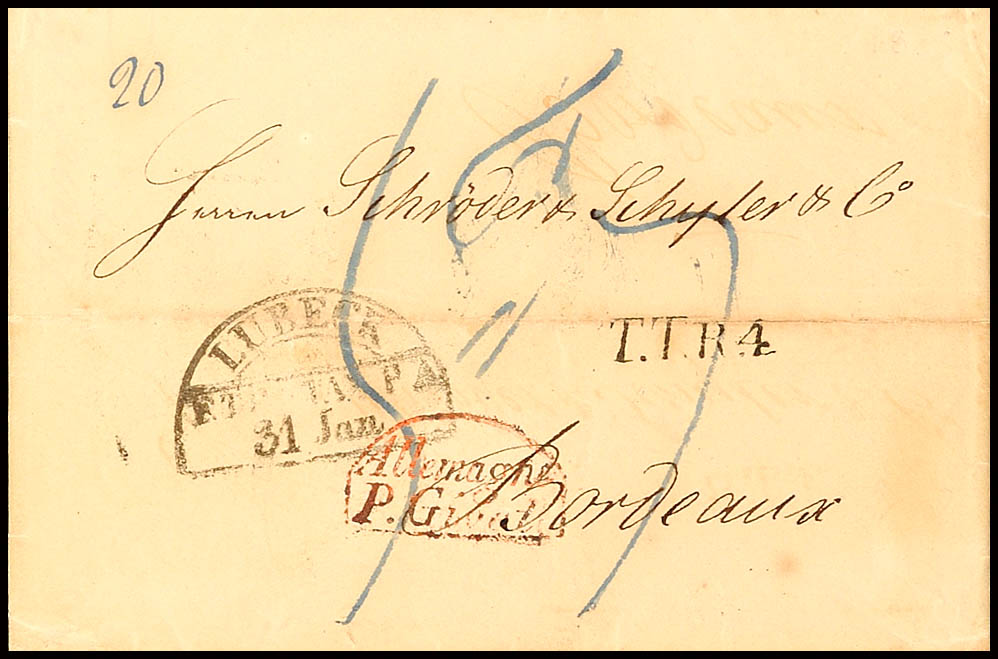 20
Herren Schröder & Schyler & Co
LUBECK
31 Jan.
T.T.R.4.
Allemagne
P. Givet
Bordeaux